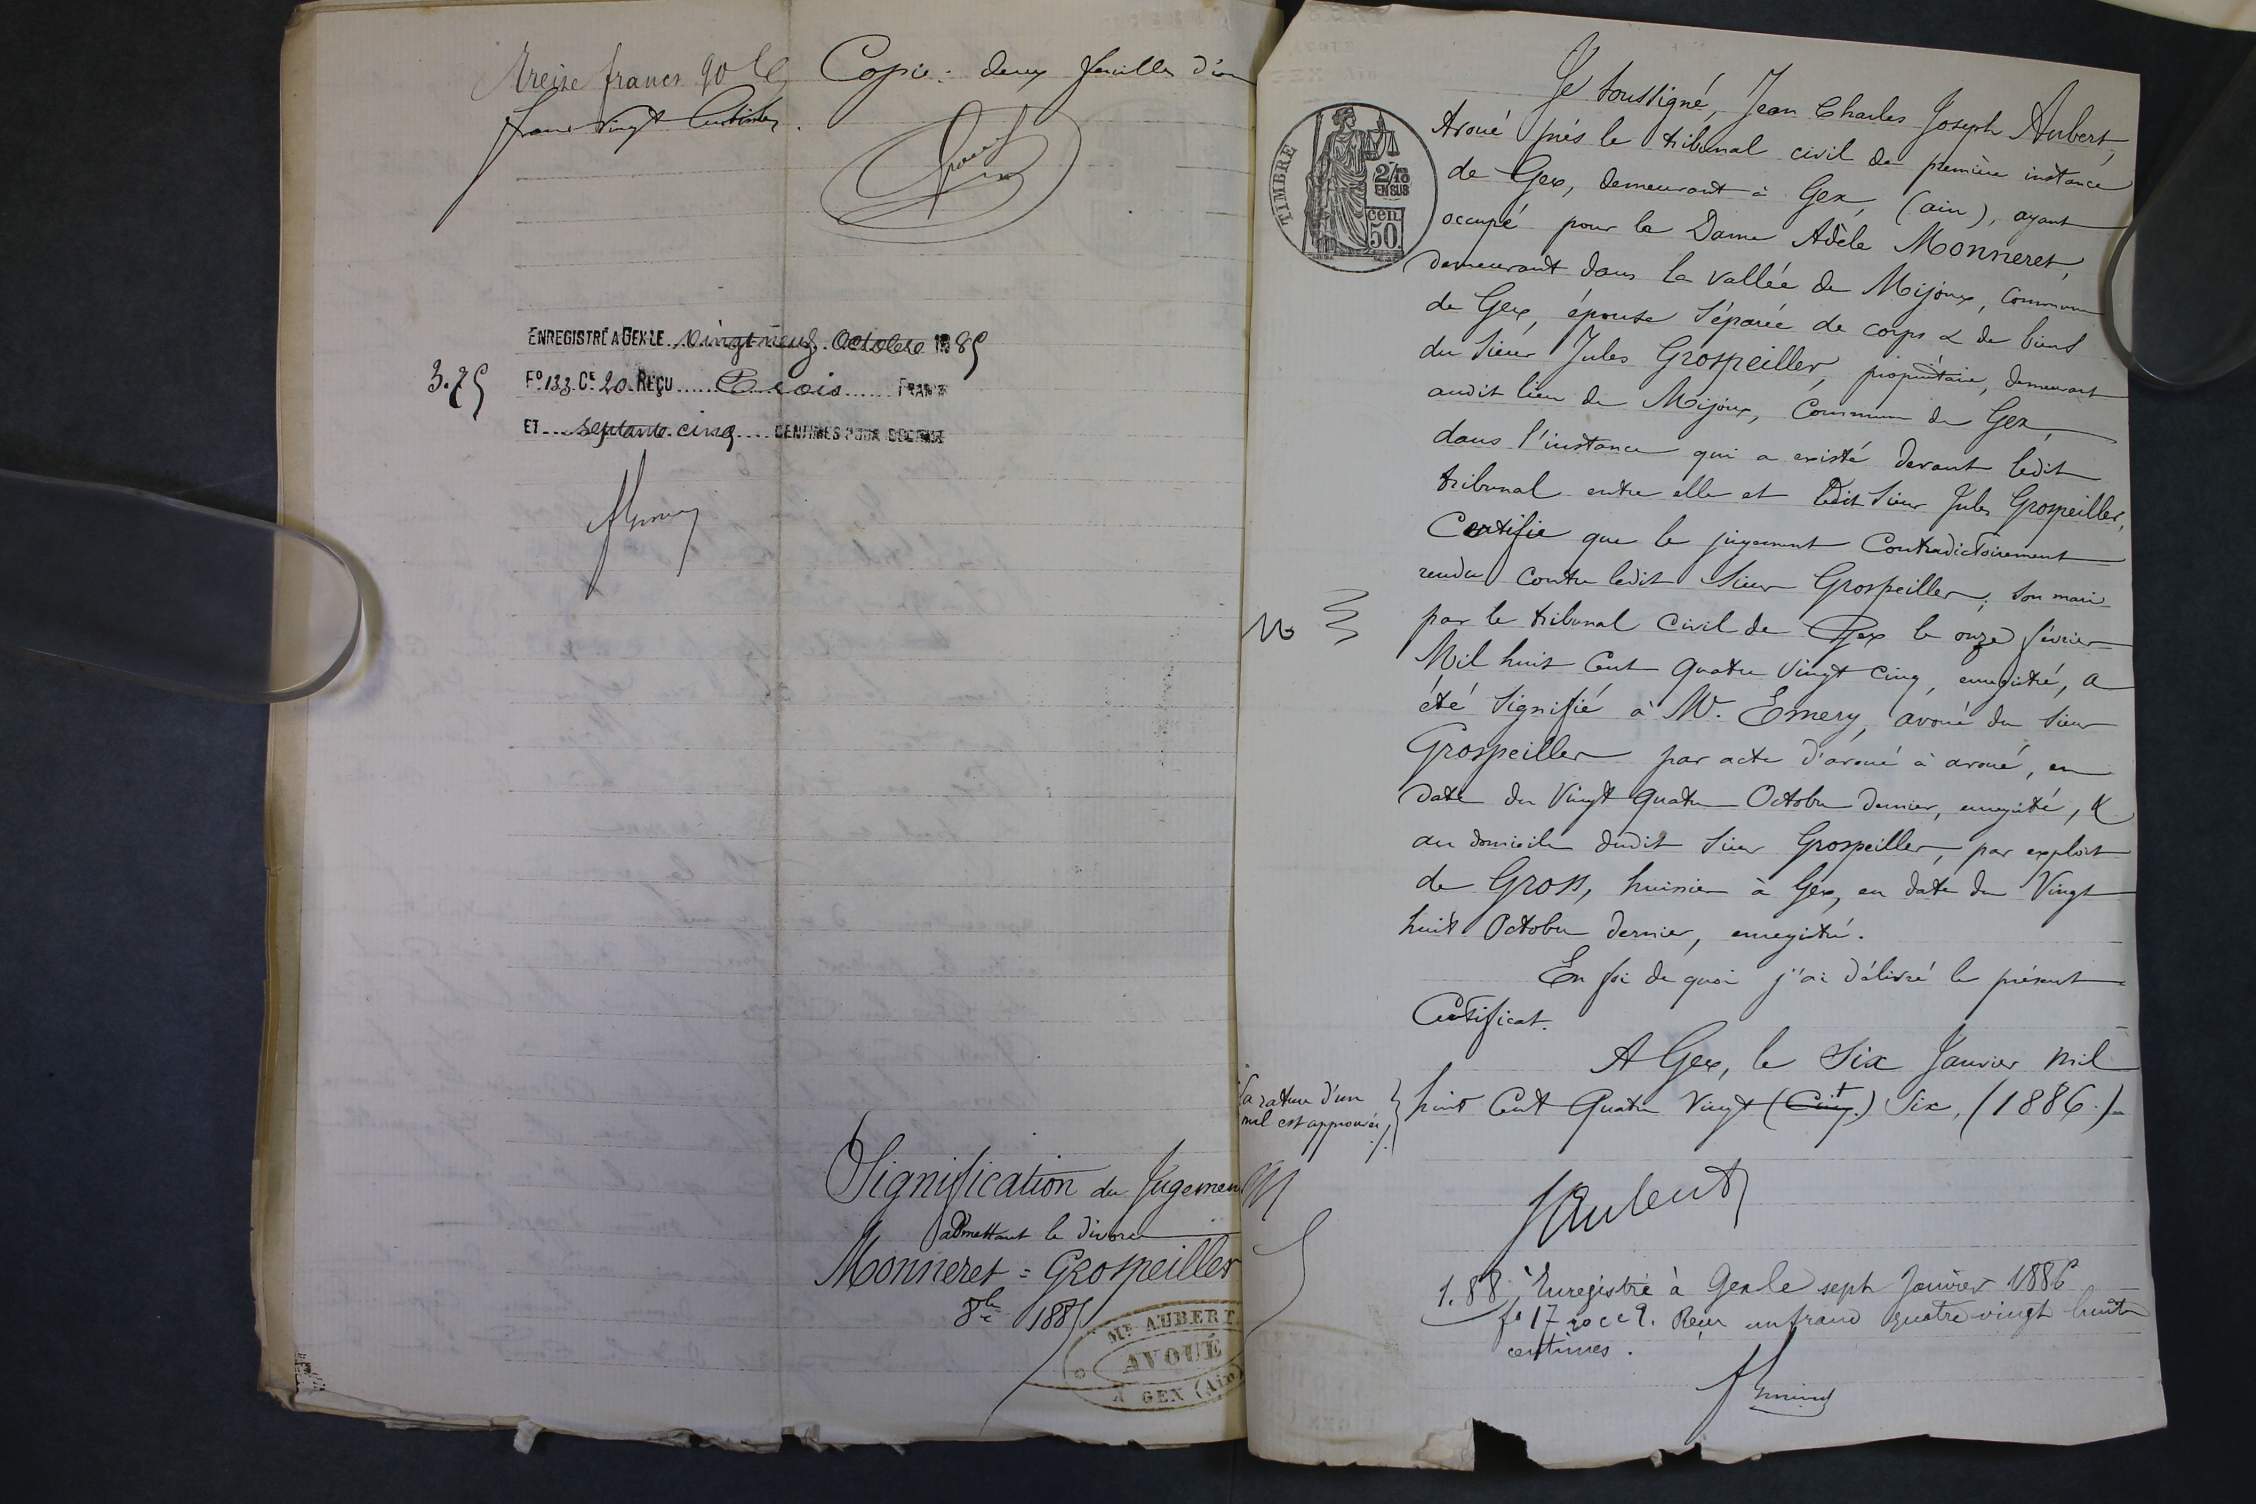 Treize francs 90 Ces Copie : deux feuilles d'un
franc vingt Centimes.
ENREGISTRÉ A GEX LE vingt neuf Octobre 1885
3.75 Fo 133 Ce 20 REÇU trois FRANCS
ET septante cinq CENTIMES POUR DECIMES
Signification du Jugement
admettant le divorce
Monneret = Grospeiller
8bre 1885
Me AUBERT
AVOUÉ
A GEX (Ain)
TIMBRE
2/10
EN SUS
cen.
50
Je soussigné, Jean Charles Joseph Aubert,
Avoué près le tribunal civil de première instance
de Gex, demeurant à Gex, (ain), ayant
occupé pour la Dame Adèle Monneret,
demeurant dans la vallée de Mijoux, Commune
de Gex, épouse séparée de corps & de biens
du Sieur Jules Grospeiller, propriétaire, demeurant
audit lieu de Mijoux, Commune de Gex,
dans l'instance qui a existé devant ledit
tribunal entre elle et ledit Sieur Jules Grospeiller,
Certifie que le jugement Contradictoirement
rendu contre ledit Sieur Grospeiller, son mari
par le tribunal Civil de Gex le onze février
Mil huit Cent quatre Vingt cinq, enregistré, a
été Signifié à Me. Emery, avoué du Sieur
Grospeiller par acte d'avoué à avoué, en
date du Vingt quatre Octobre dernier, enregistré, &
au domicile dudit Sieur Grospeiller, par exploit
de Gros, huissier à Gex, en date du Vingt
huit Octobre dernier, enregistré.
En foi de quoi j'ai délivré le présent
Certificat.
A Gex, le Six Janvier mil
huit Cent Quatre Vingt (Cinq.) Six, (1886.)
la rature d'un
mil est approuvée
JAubert
1.88 Enregistré à Gex le sept Janvier 1886
fo 17 ro ce 9. Reçu un franc quatre vingt huit
centimes.